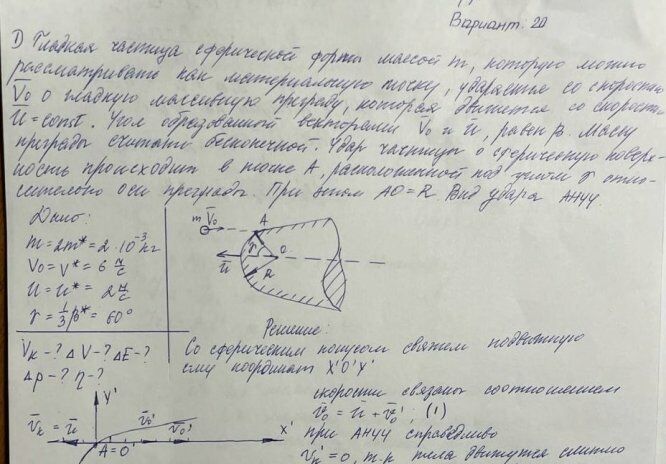 Вариант: 20
1) Гладкая частица сферической формы массой m, которую можно
рассматривать как материальную точку, ударяется со скоростью
V̄₀ о гладкую массивную преграду, которая движется со скоростью
Ū = const. Угол образованный векторами V̄₀ и ū, равен β. Массу
преграды считать бесконечной. Удар частицы о сферическую поверх-
ность происходит в точке A, расположенной под углом γ отно-
сительно оси преграды. При этом AO = R. Вид удара АНУУ.
Дано:
m = 2m* = 2·10⁻³ кг
V₀ = V* = 6 м/с
U = u* = 2 м/с
γ = 1/3 β* = 60°
V̄к -? ΔV -? ΔE -?
Δp -? η -?
m V̄₀ A
ū γ O
R
Решение:
Со сферическим конусом свяжем подвижную
сист координат X'O'Y'
скорости связаны соотношением
v̄₀ = ū + v̄₀' ; (1)
при АНУУ справедливо
v̄к' = 0, т.к тела движутся слитно
Y'
V̄к = ū v̄₀' V̄₀' X'
A = O'